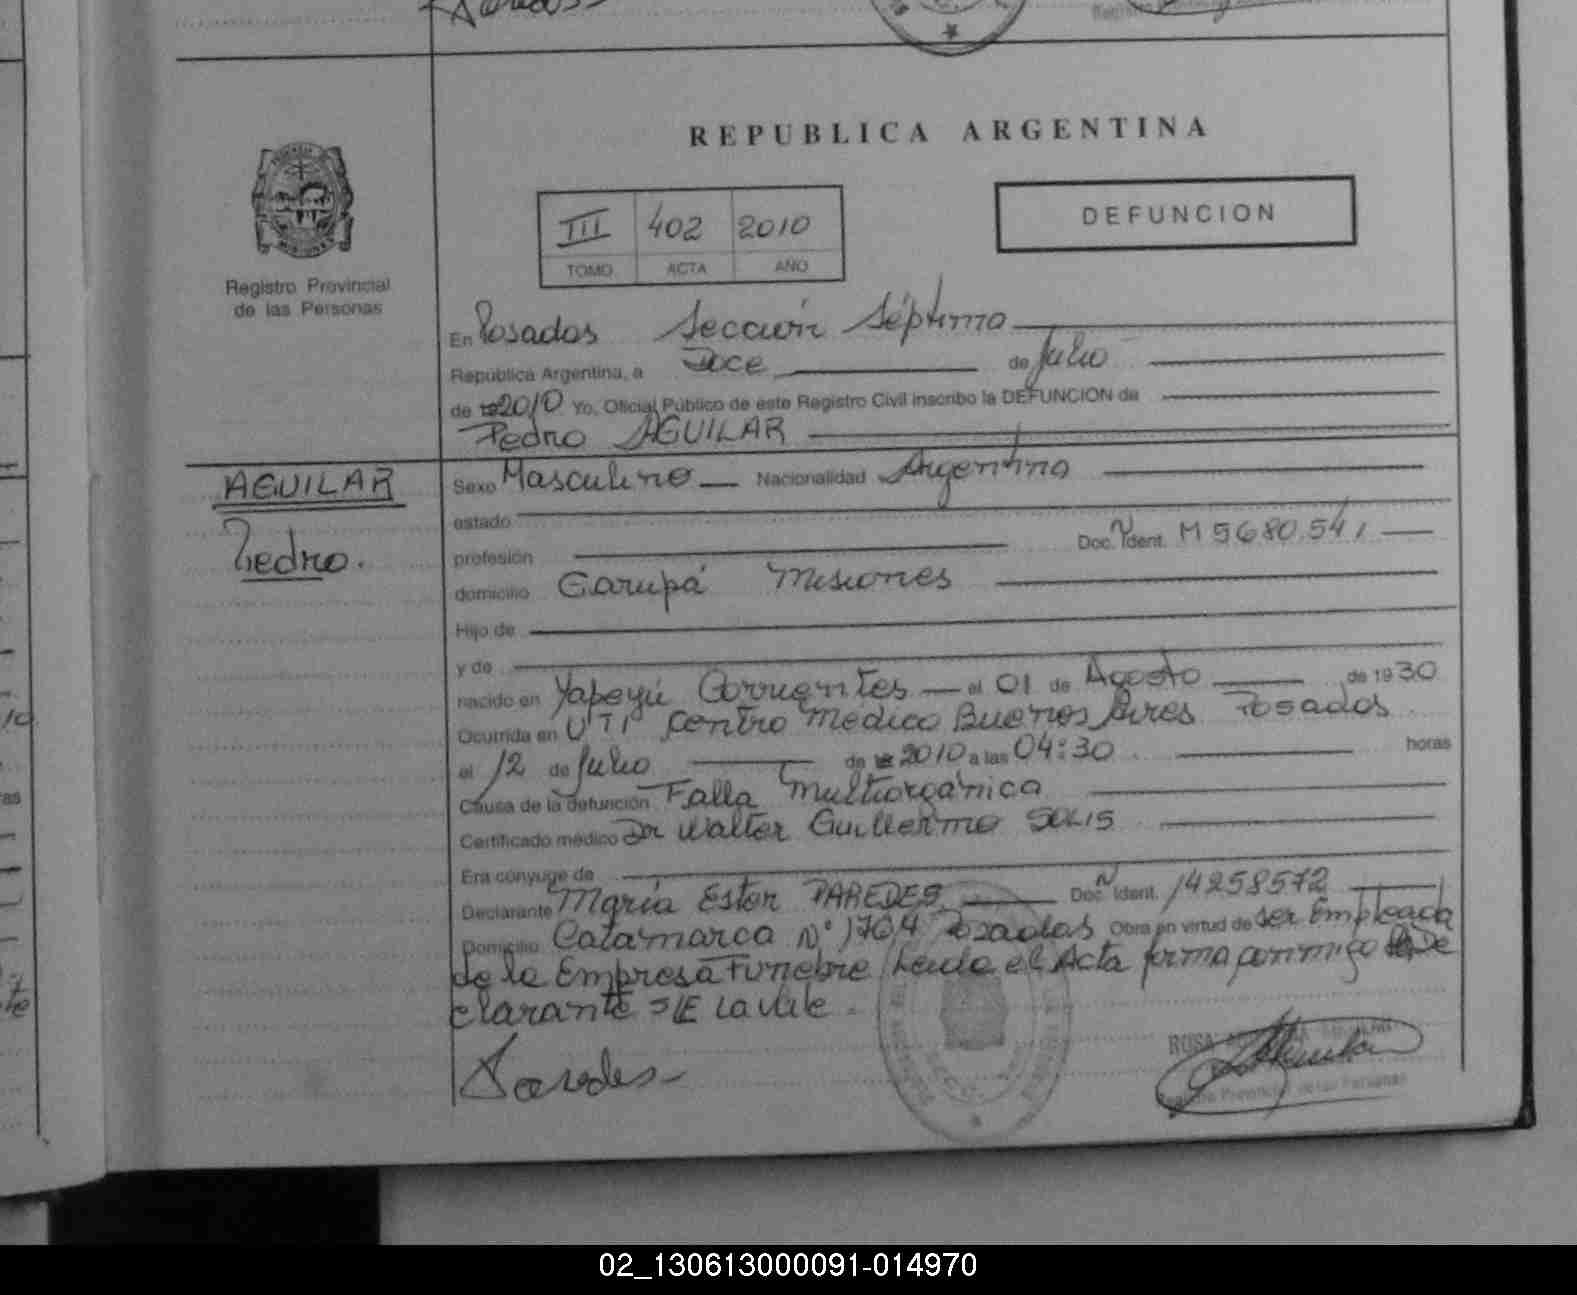 REPUBLICA ARGENTINA
DEFUNCION
III 402 2010
TOMO ACTA AÑO
Registro Provincial
de las Personas
En Posadas Sección Séptima
República Argentina, a Doce de Julio
de 2010 Yo, Oficial Público de este Registro Civil inscribo la DEFUNCION de
Pedro AGUILAR
AGUILAR
Pedro.
Sexo Masculino Nacionalidad Argentina
estado
profesión Doc. N Ident. M 5680.541
domicilio Garupá Misiones
Hijo de
y de
nacido en Yapeyú Corrientes el 01 de Agosto de 1930
Ocurrida en UTI Centro Medico Buenos Aires Posadas
el 12 de Julio de 2010 a las 04:30 horas
Causa de la defunción Falla Multiorgánica
Certificado médico Dr Walter Guillermo SOLIS
Era cónyuge de
Declarante María Ester PAREDES Doc. N Ident. 14258572
Domicilio Catamarca N° 1704 Posadas Obra en virtud de ser Empleada
de la Empresa Funebre Leida el Acta firma conmigo De
clarante S/E la Vale.
Paredes
ROSA
Registro Provincial de las Personas
02_130613000091-014970